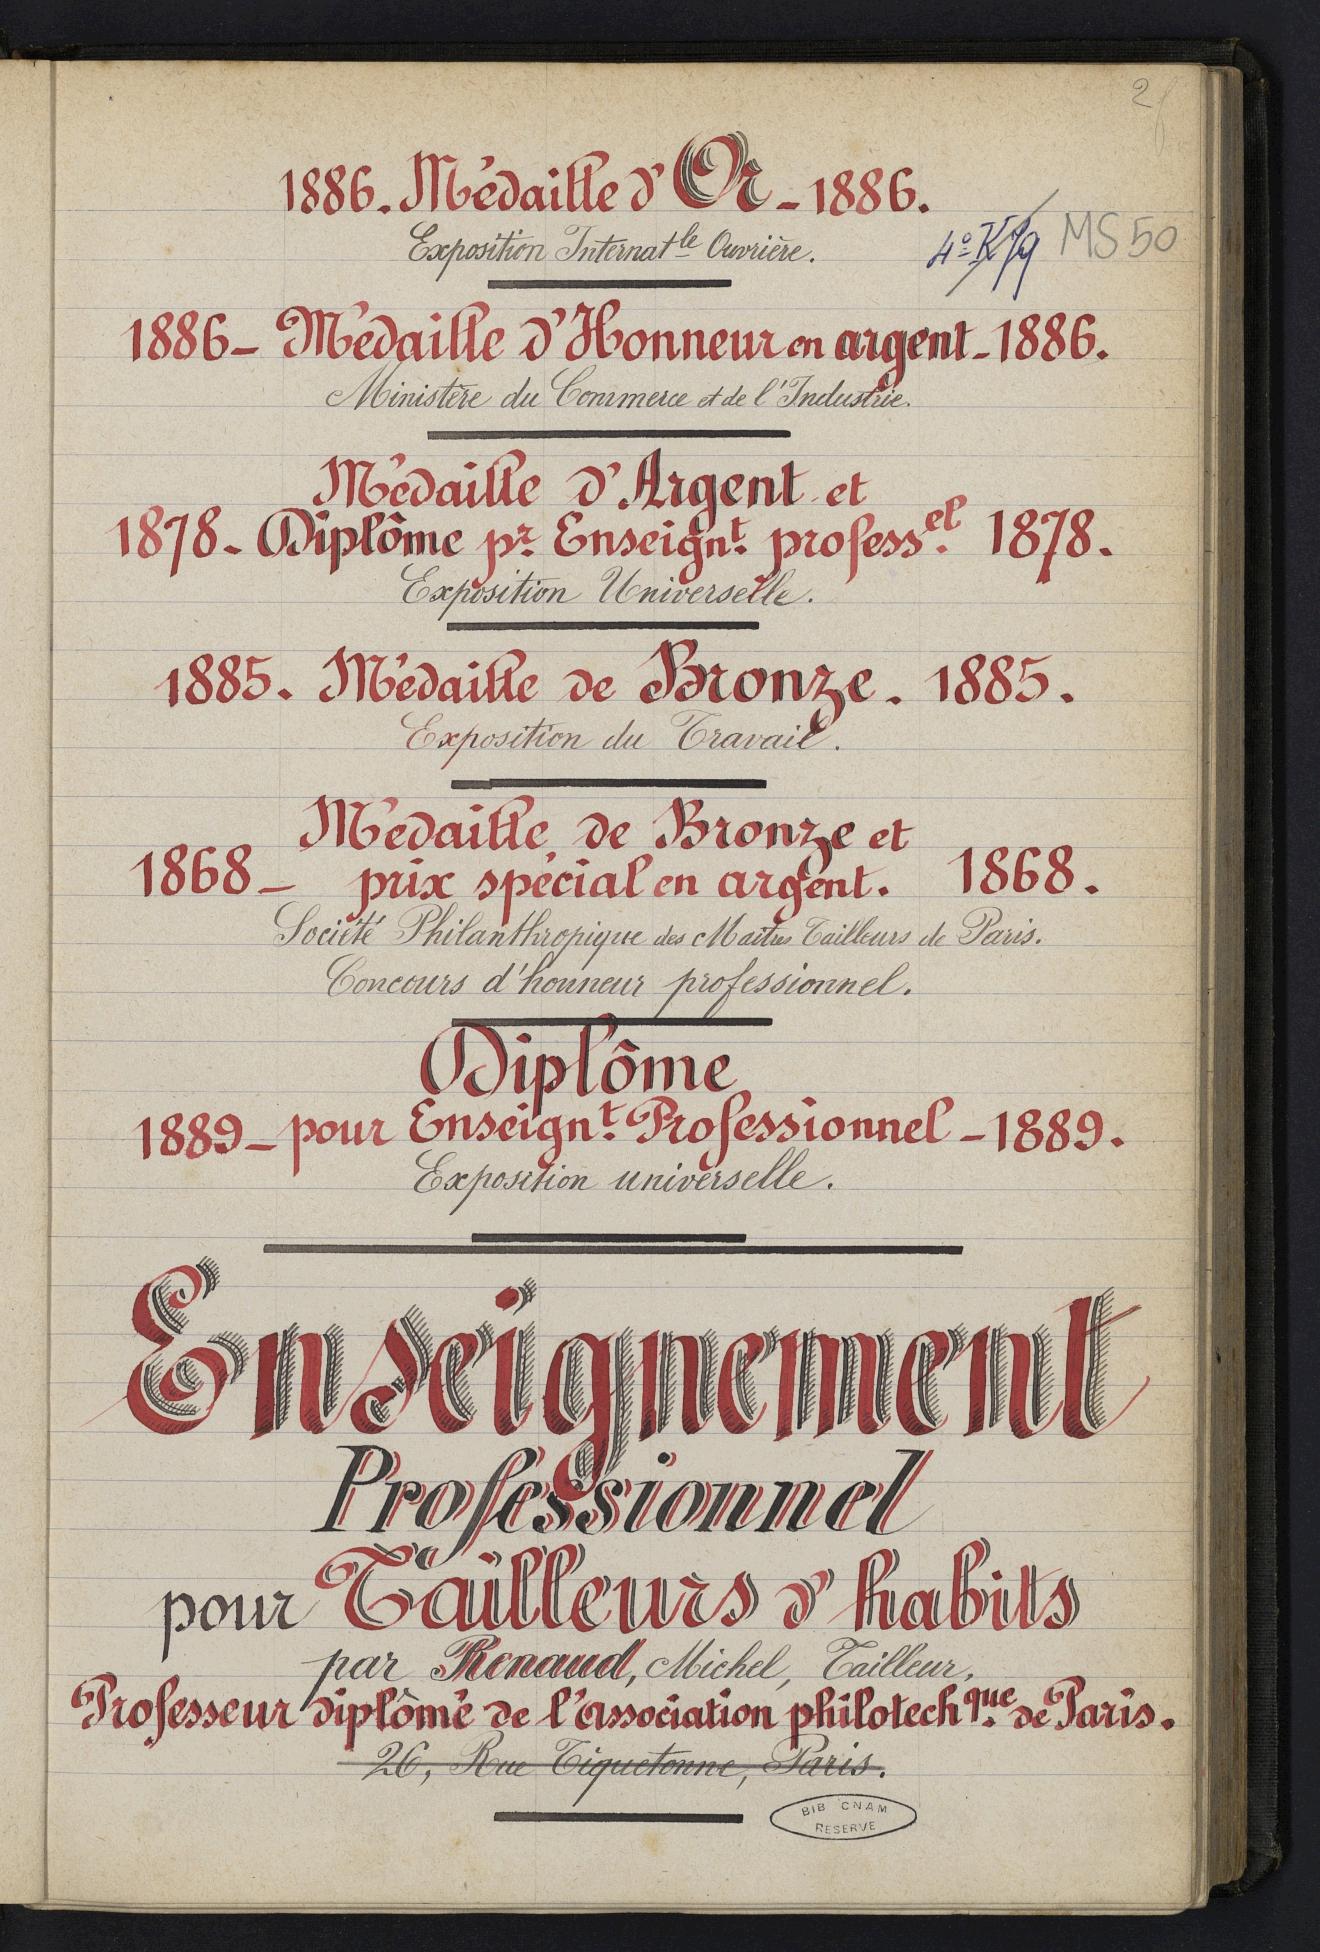 2
1886. Médaille d'Or - 1886.
Exposition Internat^le Ouvrière.
4° K 79 MS 50
1886 - Médaille d'Honneur en argent - 1886.
Ministère du Commerce et de l'Industrie.
Médaille d'Argent et
1878. Diplôme p^r Enseign^t. profess^el. 1878.
Exposition Universelle.
1885. Médaille de Bronze. 1885.
Exposition du Travail.
Médaille de Bronze et
1868 - prix spécial en argent. 1868.
Société Philanthropique des Maîtres Tailleurs de Paris.
Concours d'honneur professionnel.
Diplôme
1889 - pour Enseign^t. Professionnel - 1889.
Exposition universelle.
Enseignement
Professionnel
pour Tailleurs d'habits
par Renaud, Michel, Tailleur,
Professeur diplômé de l'Association philotech^que. de Paris.
26, Rue Tiquetonne, Paris.
BIB CNAM
RESERVE